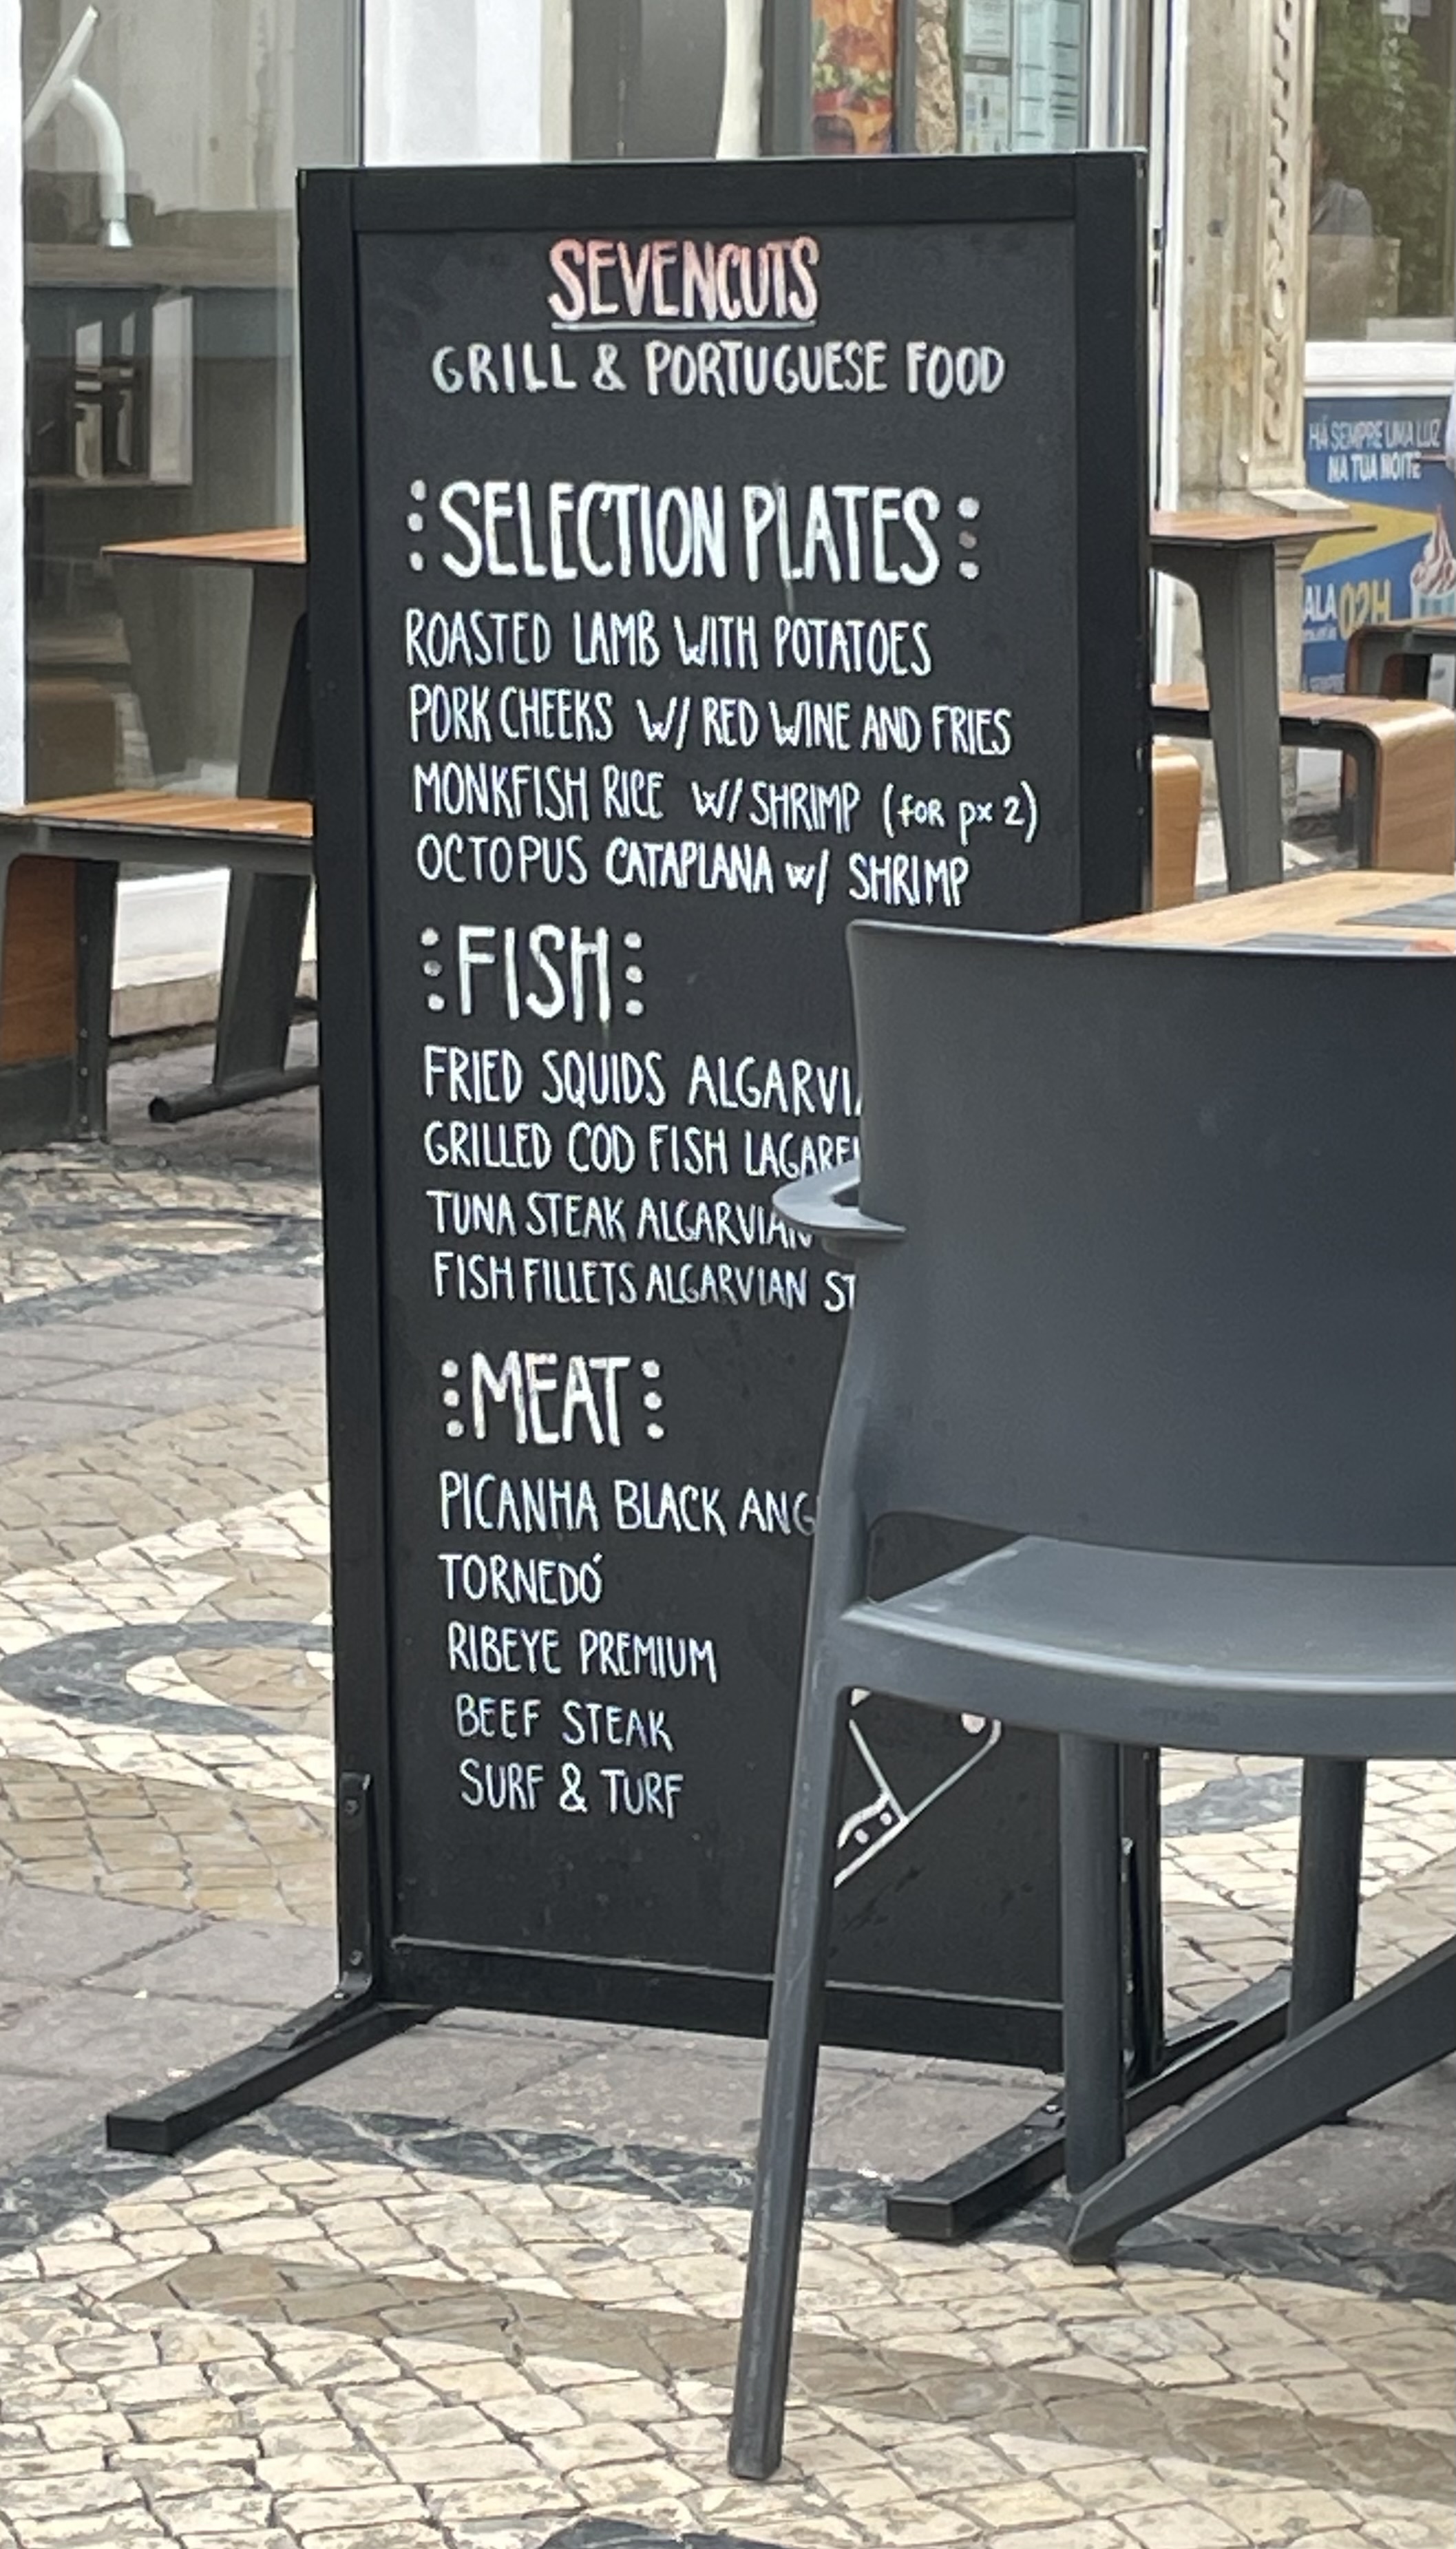 SEVENCUTS
GRILL & PORTUGUESE FOOD
SELECTION PLATES
ROASTED LAMB WITH POTATOES
PORK CHEEKS W/ RED WINE AND FRIES
MONKFISH RICE W/ SHRIMP (for px 2)
OCTOPUS CATAPLANA w/ SHRIMP
FISH
FRIED SQUIDS
GRILLED COD FISH
TUNA STEAK ALGARVIAN
FISH FILLETS ALGARVIAN
MEAT
PICANHA BLACK
TORNEDÓ
RIBEYE PREMIUM
BEEF STEAK
SURF & TURF
HÁ SEMPRE UMA LUZ
NA TUA NOITE
02H